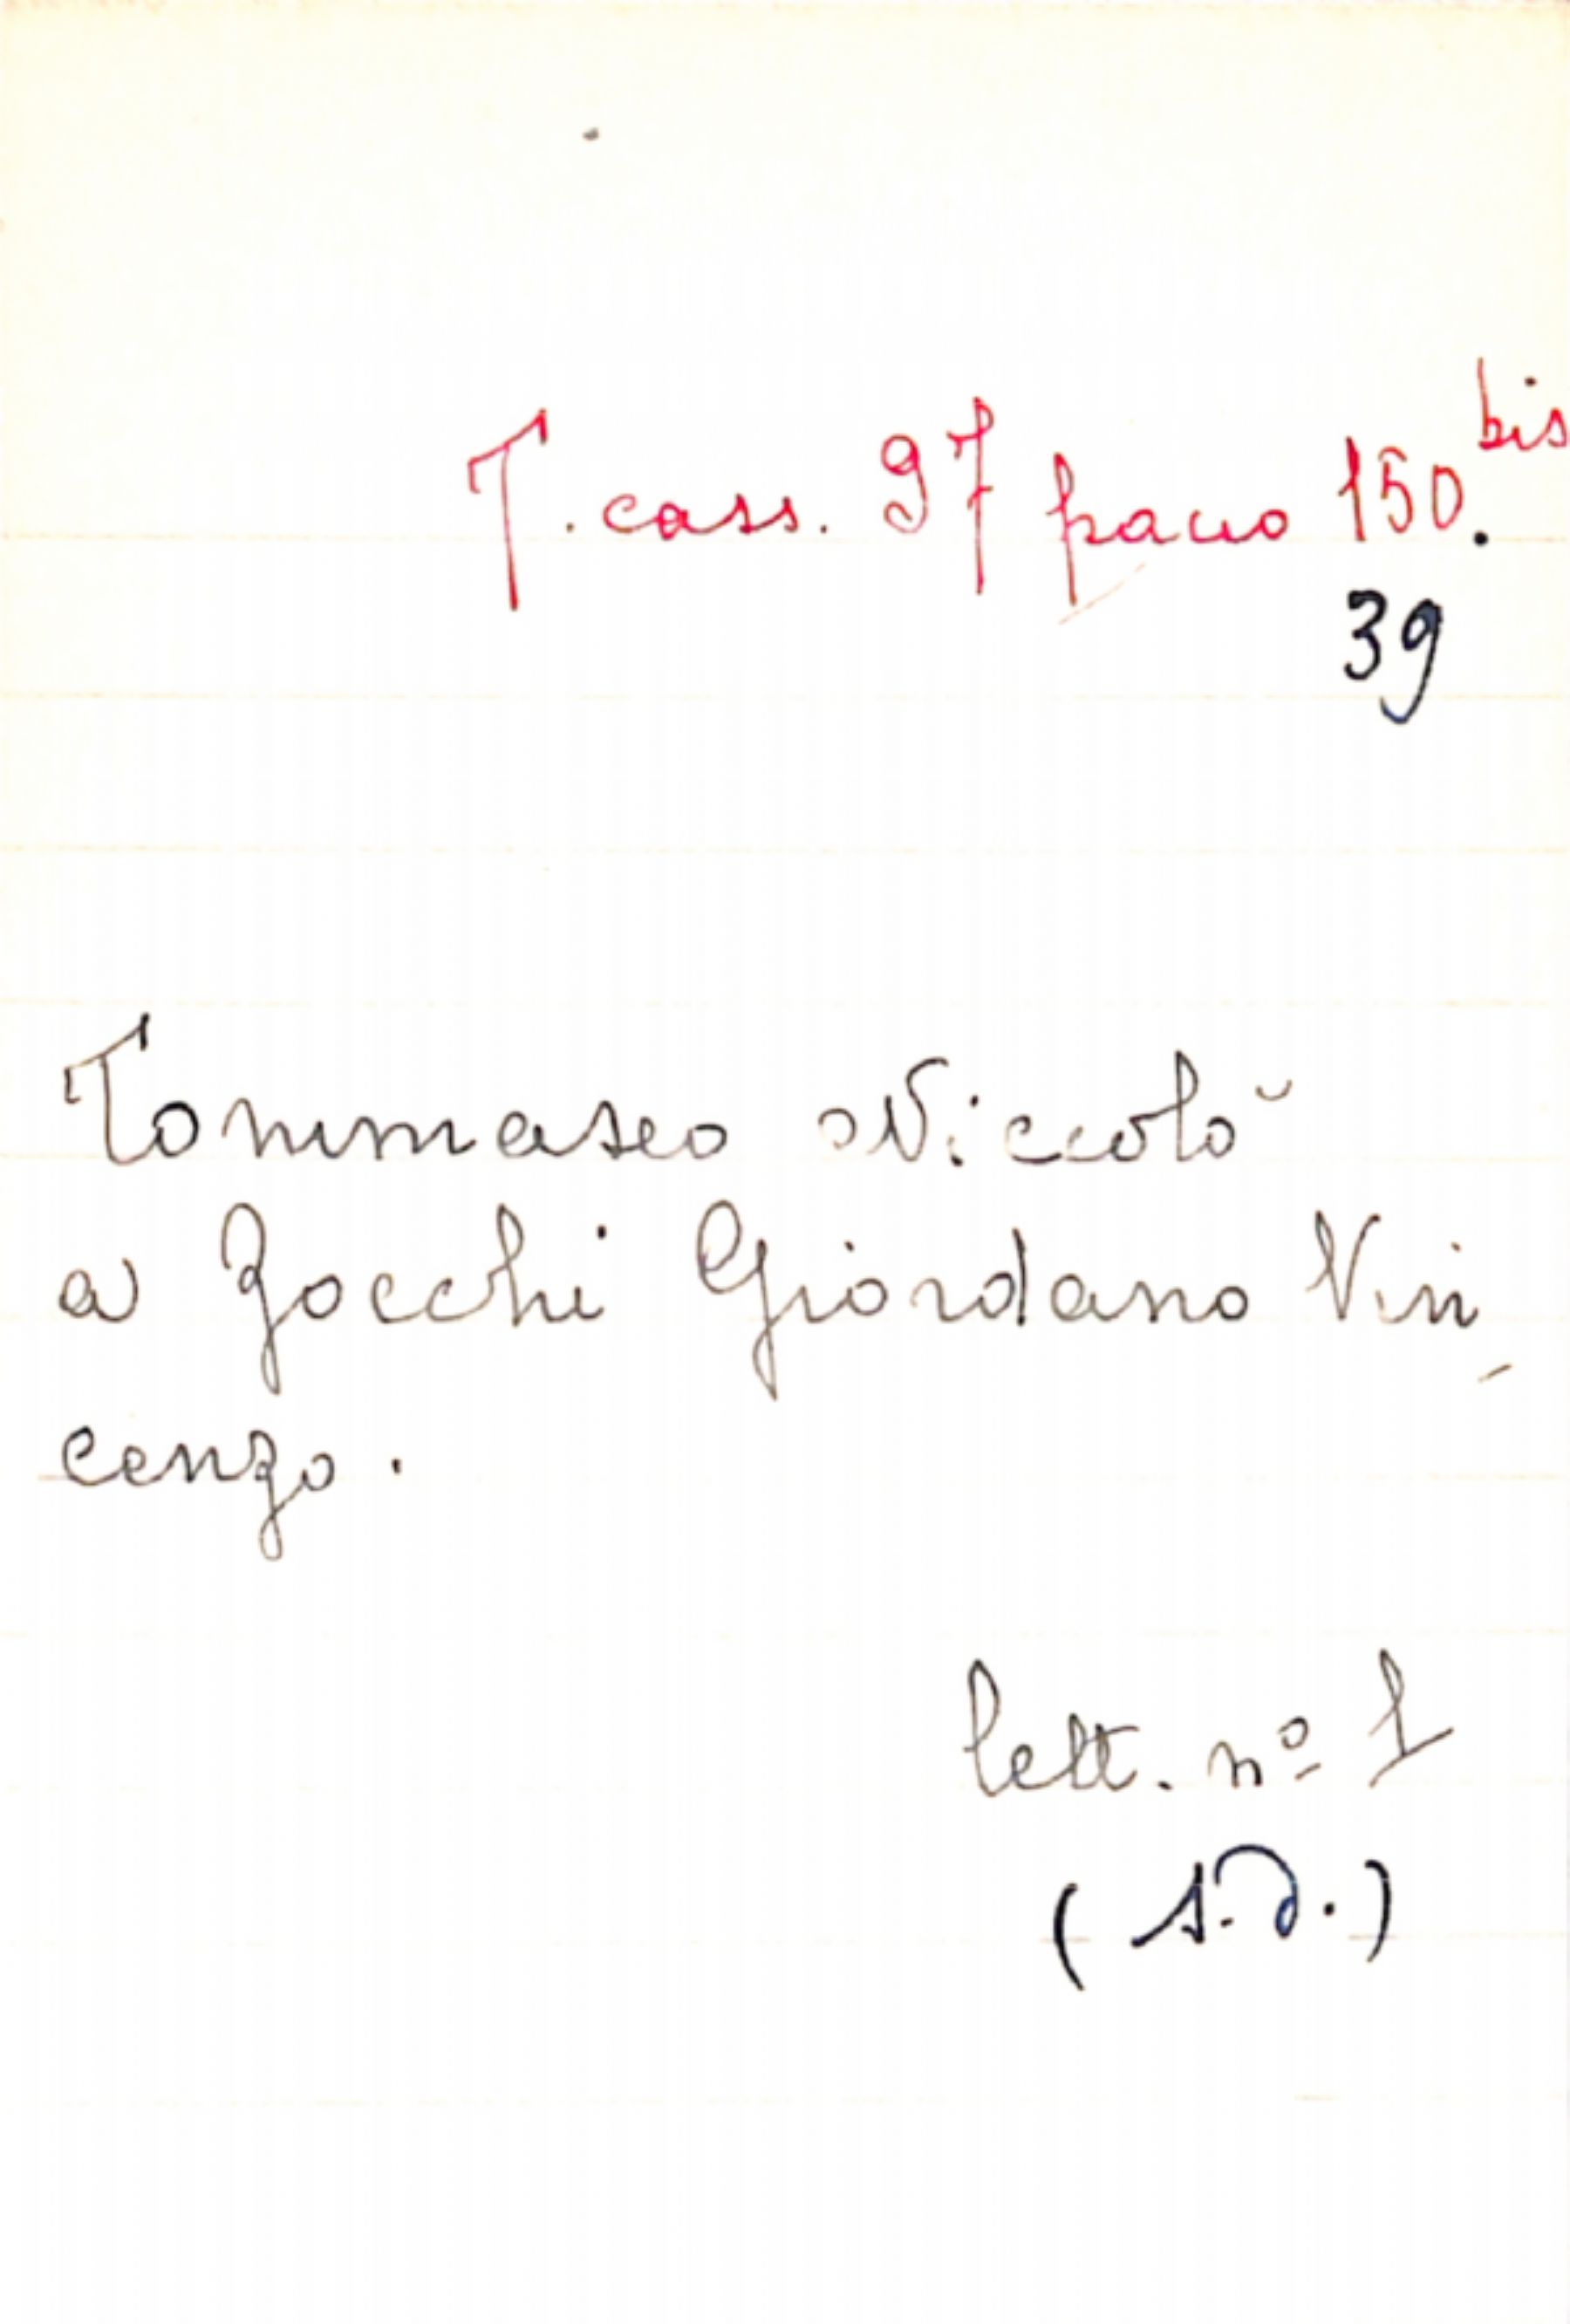 T. cass. 97 pacco 150. bis
39
Tommaseo Niccolò
a Zocchi Giordano Vin-
cenzo.
lett. nº 1
(s.d.)